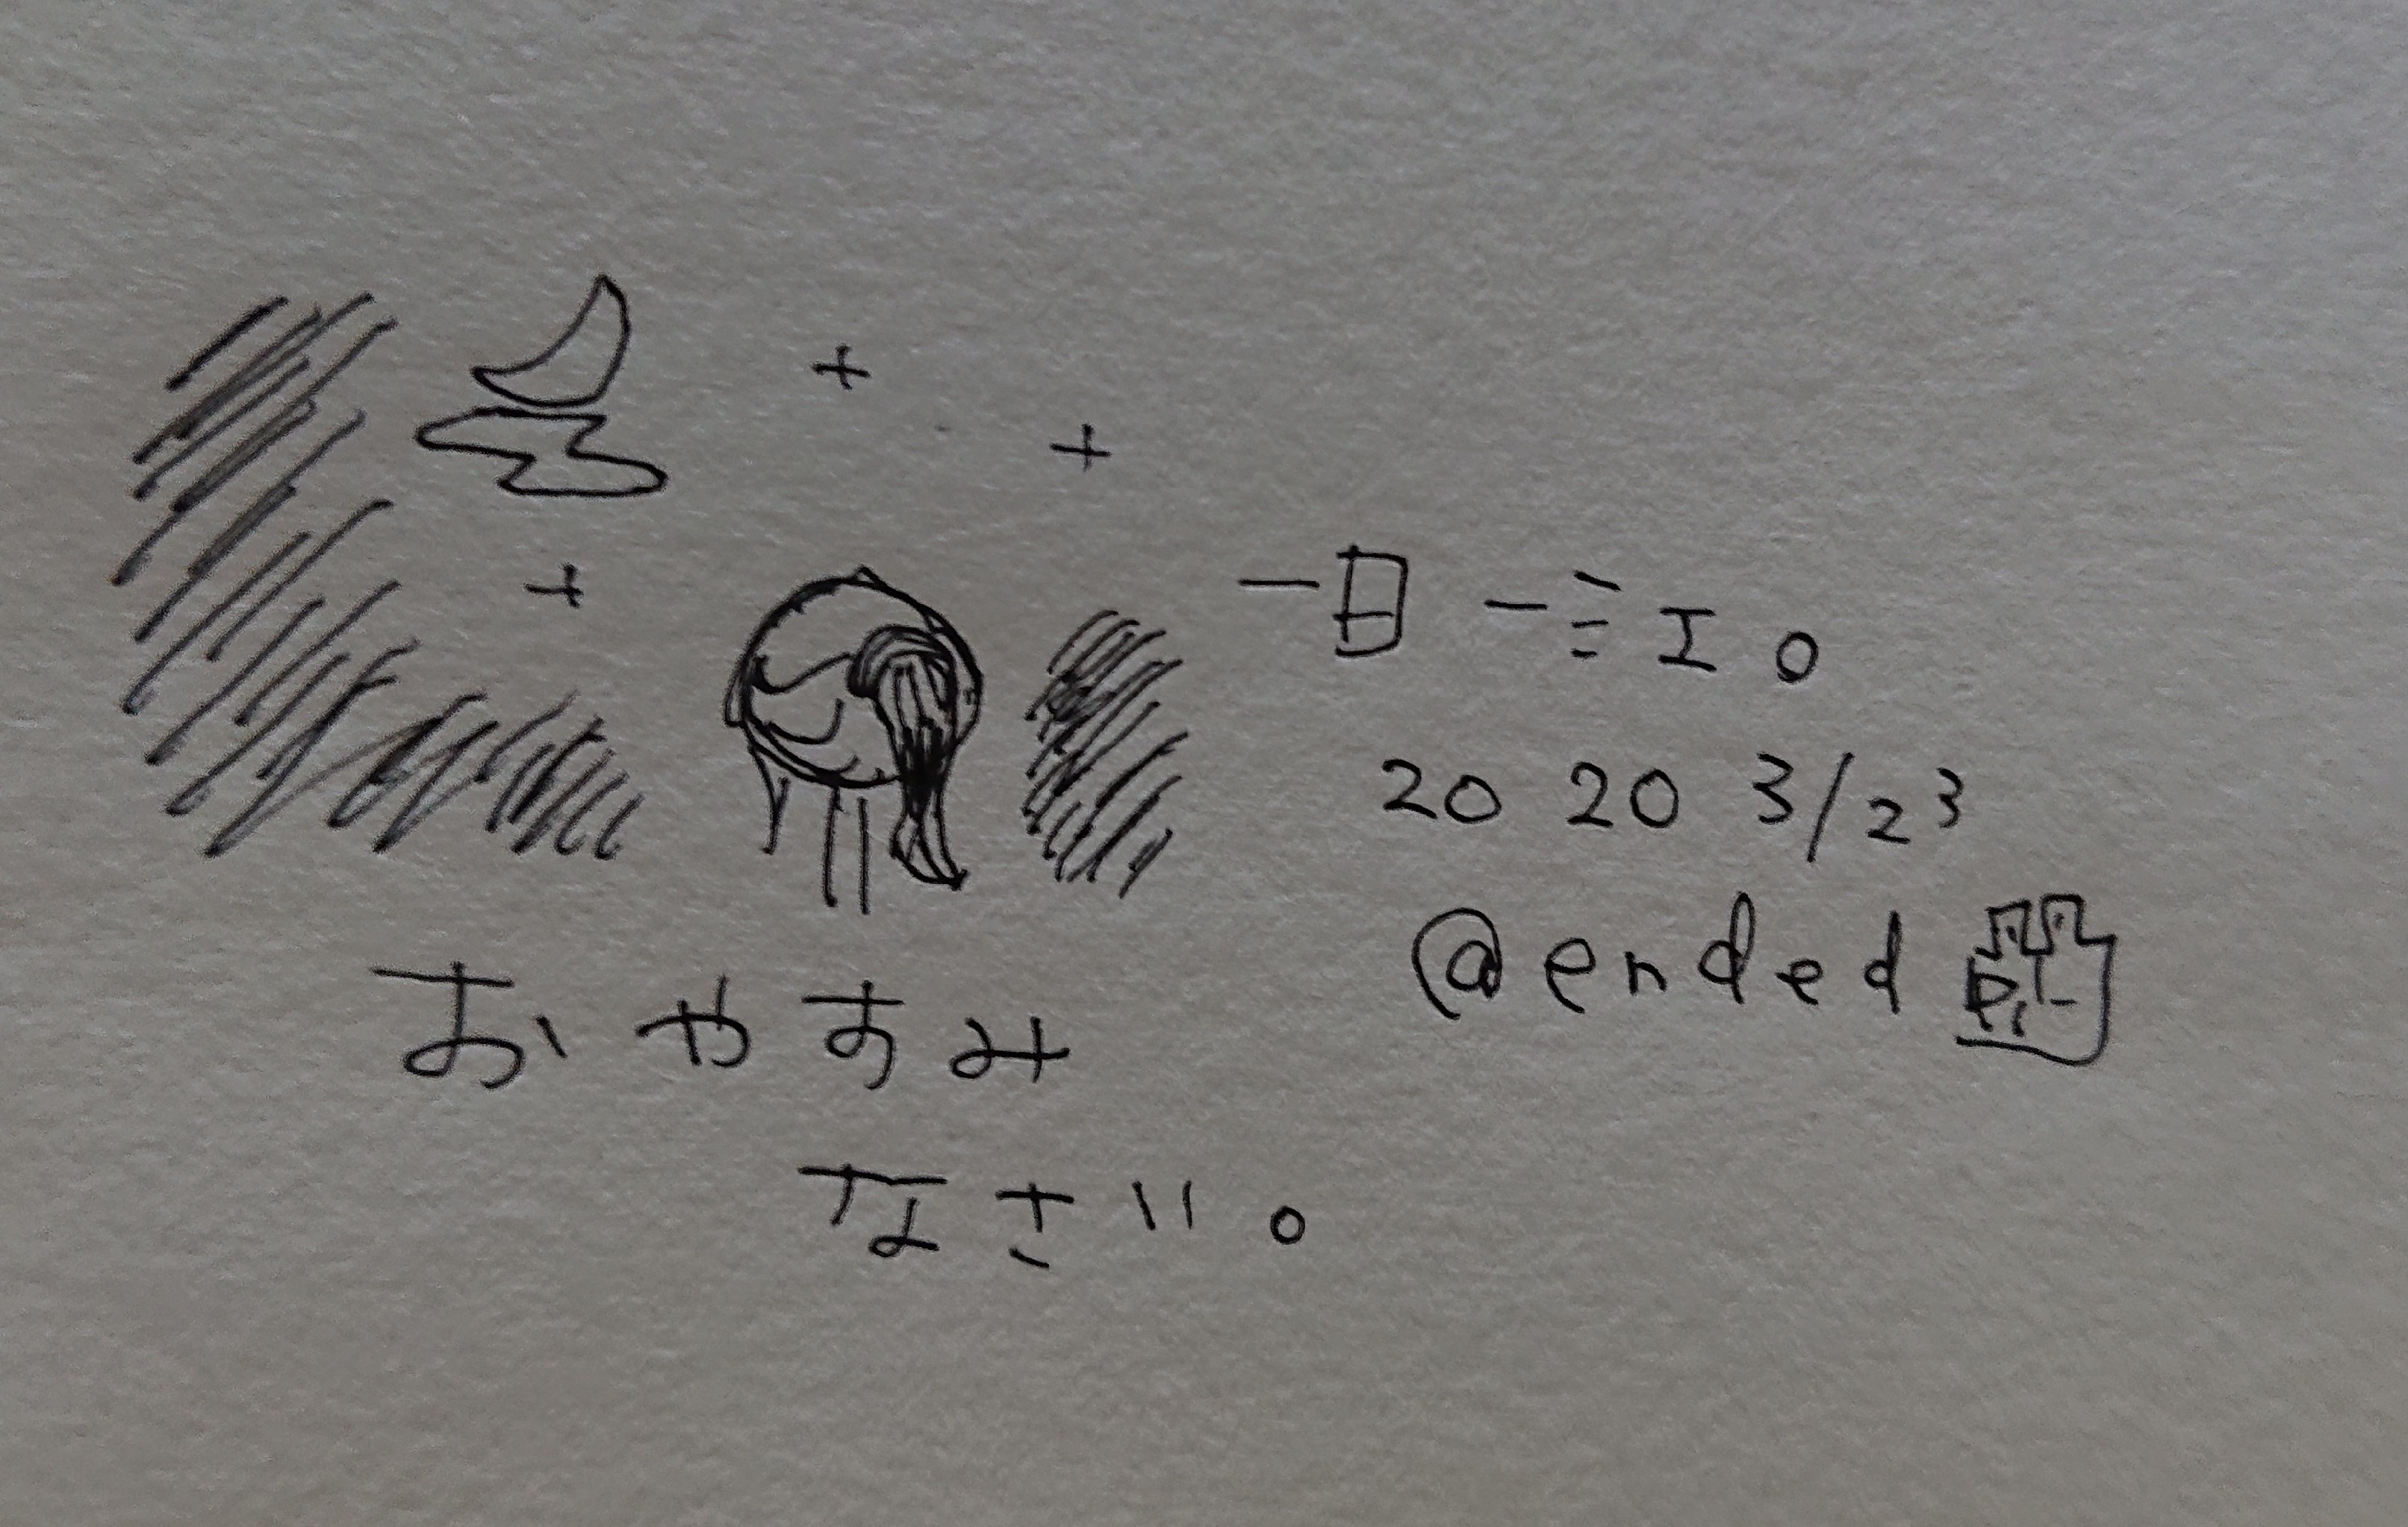 一日一ミエ。
2020 3/23
@ended
おやすみ
なさい。